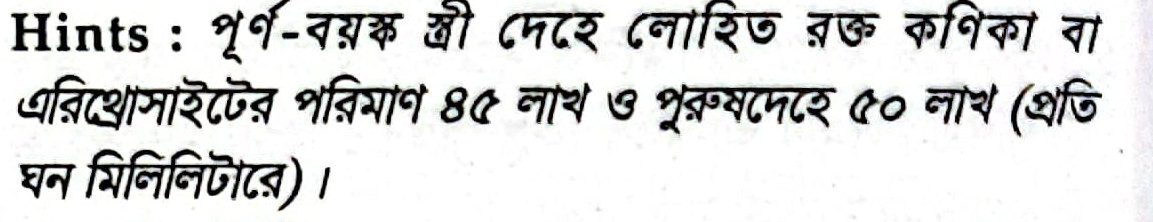 Hints : পূর্ণ-বয়স্ক স্ত্রী দেহে লোহিত রক্ত কণিকা বা
এরিথ্রোসাইটের পরিমাণ ৪৫ লাখ ও পুরুষদেহে ৫০ লাখ (প্রতি
ঘন মিলিলিটারে) ।